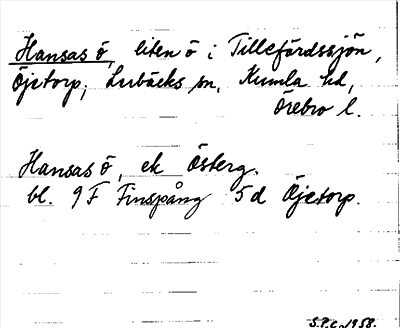 Hansas ö, liten ö i Tillefärdssjön,
Öjetorp; Lerbäcks sn, Kumla hd,
Örebro l.
Hansas ö, ek Österg.
bl. 9F Finspång 5d Öjetorp.
S.P.C. 1958.